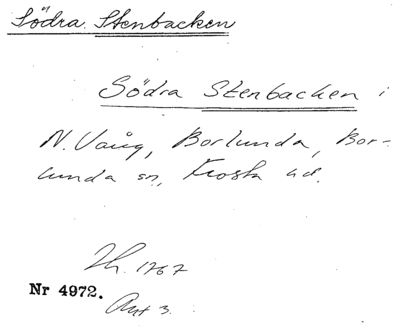 Södra Stenbacken
Södra Stenbacken i
N. Vång, Borlunda, Bor-
lunda sn, Frosta hd.
1767
Nr 4972.
Akt 3.